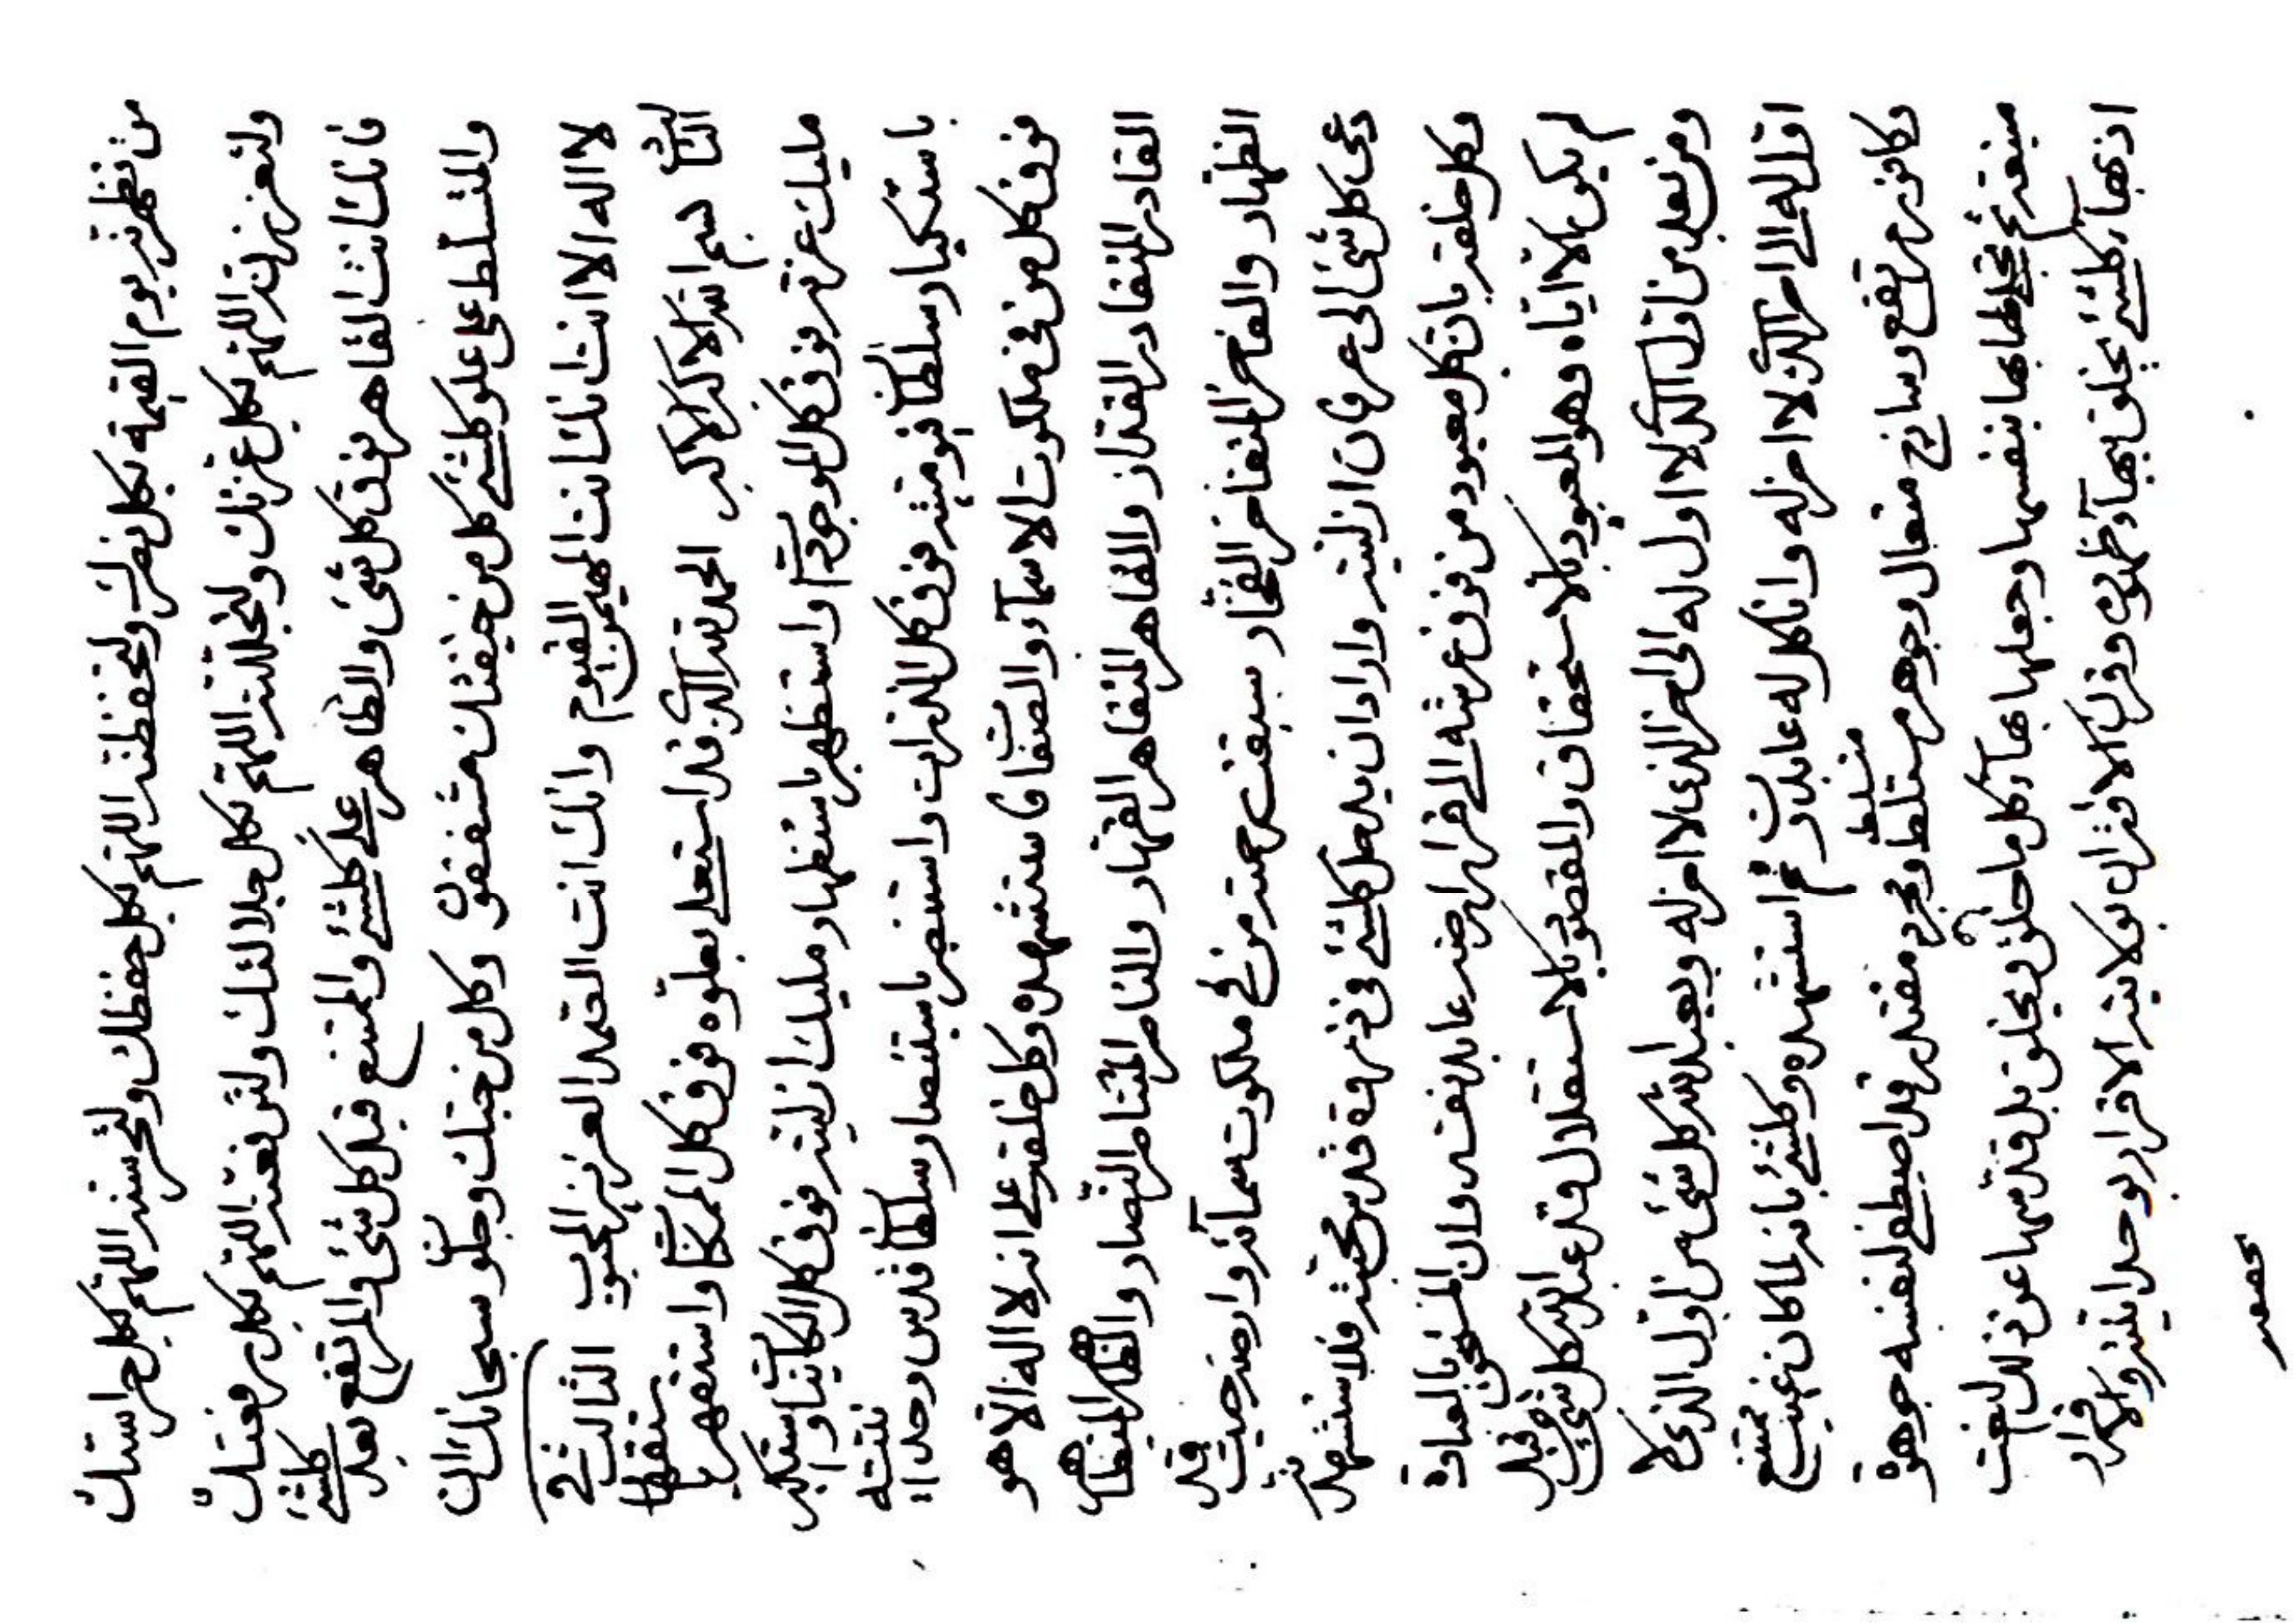 من تظهرنه يوم القيمة بكل نصرك ولتحفظنه اللهم بكل حفظك ولتحرسنه اللهم بكل حراستك
ولتعززنه اللهم بكل عزتك ولتجللنه اللهم بكل جلالتك ولترفعنه اللهم بكل رفعتك
فانك انت القاهر فوق كل شئ والظاهر على كلشئ والممتنع قبل كل شئ والمرتفع بعد كلشئ
والمتسلط على علو كلشئ كل من خيفتك مشفقون وكل من حبك وجلو سبحانك ان
لا اله الا انت انك انت المهيمن القيوم وانك انت العزيز المحبوب الثالث في
الثالث بسم الله الاكبر الاكبر الحمد لله الذي قد استعلى بعلوه فوق كل الممكنات واستقهر باستقهار
مليك عزته فوق كل الموجودات واستظهر باستظهار مليك ازليته فوق كل الكاينات واستكبر
باستكبار سلطان قيوميته فوق كل الذرات واستنصر باستنصار سلطان قدس وحدانيته
فوق كل من في ملكوت الاسماء والصفات استشهده وكل خلقه على انه لا اله الا هو
القادر المتقادر القدار والقاهر المتقاهر القهار والناصر المتناصر النصار والظاهر المتظاهر
الظهار والفاخر المتفاخر الفخار سبقت رحمته من في ملكوت سمائه وارضه حيث قد
دعى كل شئ الى عرفان ازليته واراد ان يدخل كلشئ في ذروة قدس محبته فلاستشهدنه
وكل خلقه بان كل معبود من دون عرشه الى قرار ارضه عابد نفسه وان المستحق بالعبادة
لم يكن الا اياه وهو المعبود بالاستحقاق والمقصود بالاستقلال قد عبد الله كل شئ من قبل
ومن بعد من اول الذي لا اول له الى اخر الذي لا اخر له ويعبد الله كل شئ من اول الذي لا
اول له الى اخر الذي لا اخر له وانا كل له عابدون ثم استشهده وكلشئ بانه لما كان غيب ممتنع
وكافور مرتفع وساذج متعال وجوهر متسلط ومجرد مقتدر قد اصطفى لنفسه جوهرة
منيعة ثم تجلى لها بها بنفسها وجعلها بهاء كل ما خلق ويخلق بل قدسها عن ذلك النعت
اذ بهاء كلشئ يخلق ببهاء ظهوره وقرن الاقتران بولايته الاقرار بوحدانيته والاقرار